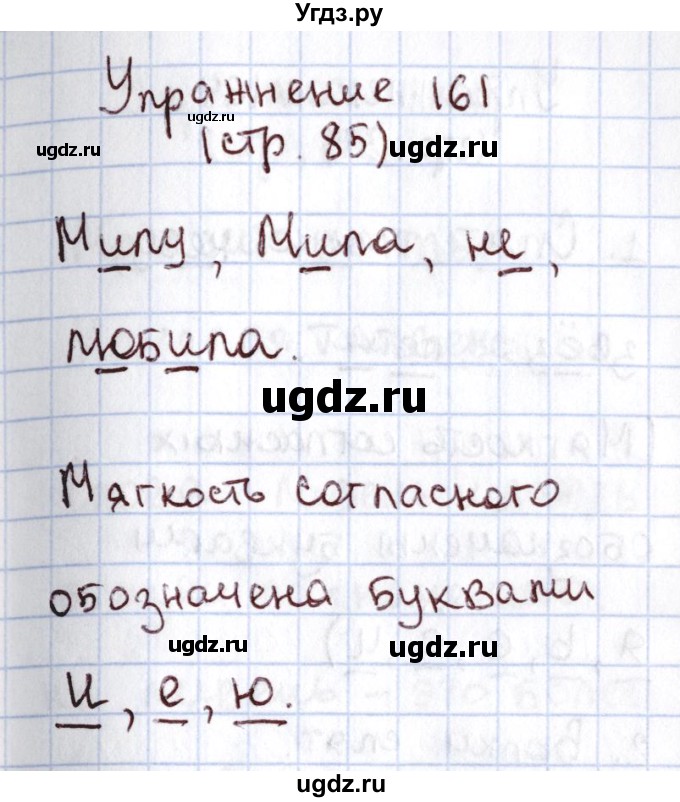 Угдз.ру
Упражнение 161
ugdz.ru
ugdz.ru (стр. 85) ugdz.ru
Милу, Мила, не,
любила.
ugdz.ru
Мягкость согласного
обозначена буквами
ugdz.ru ugdz.ru
и, е, ю.
ugdz.ru